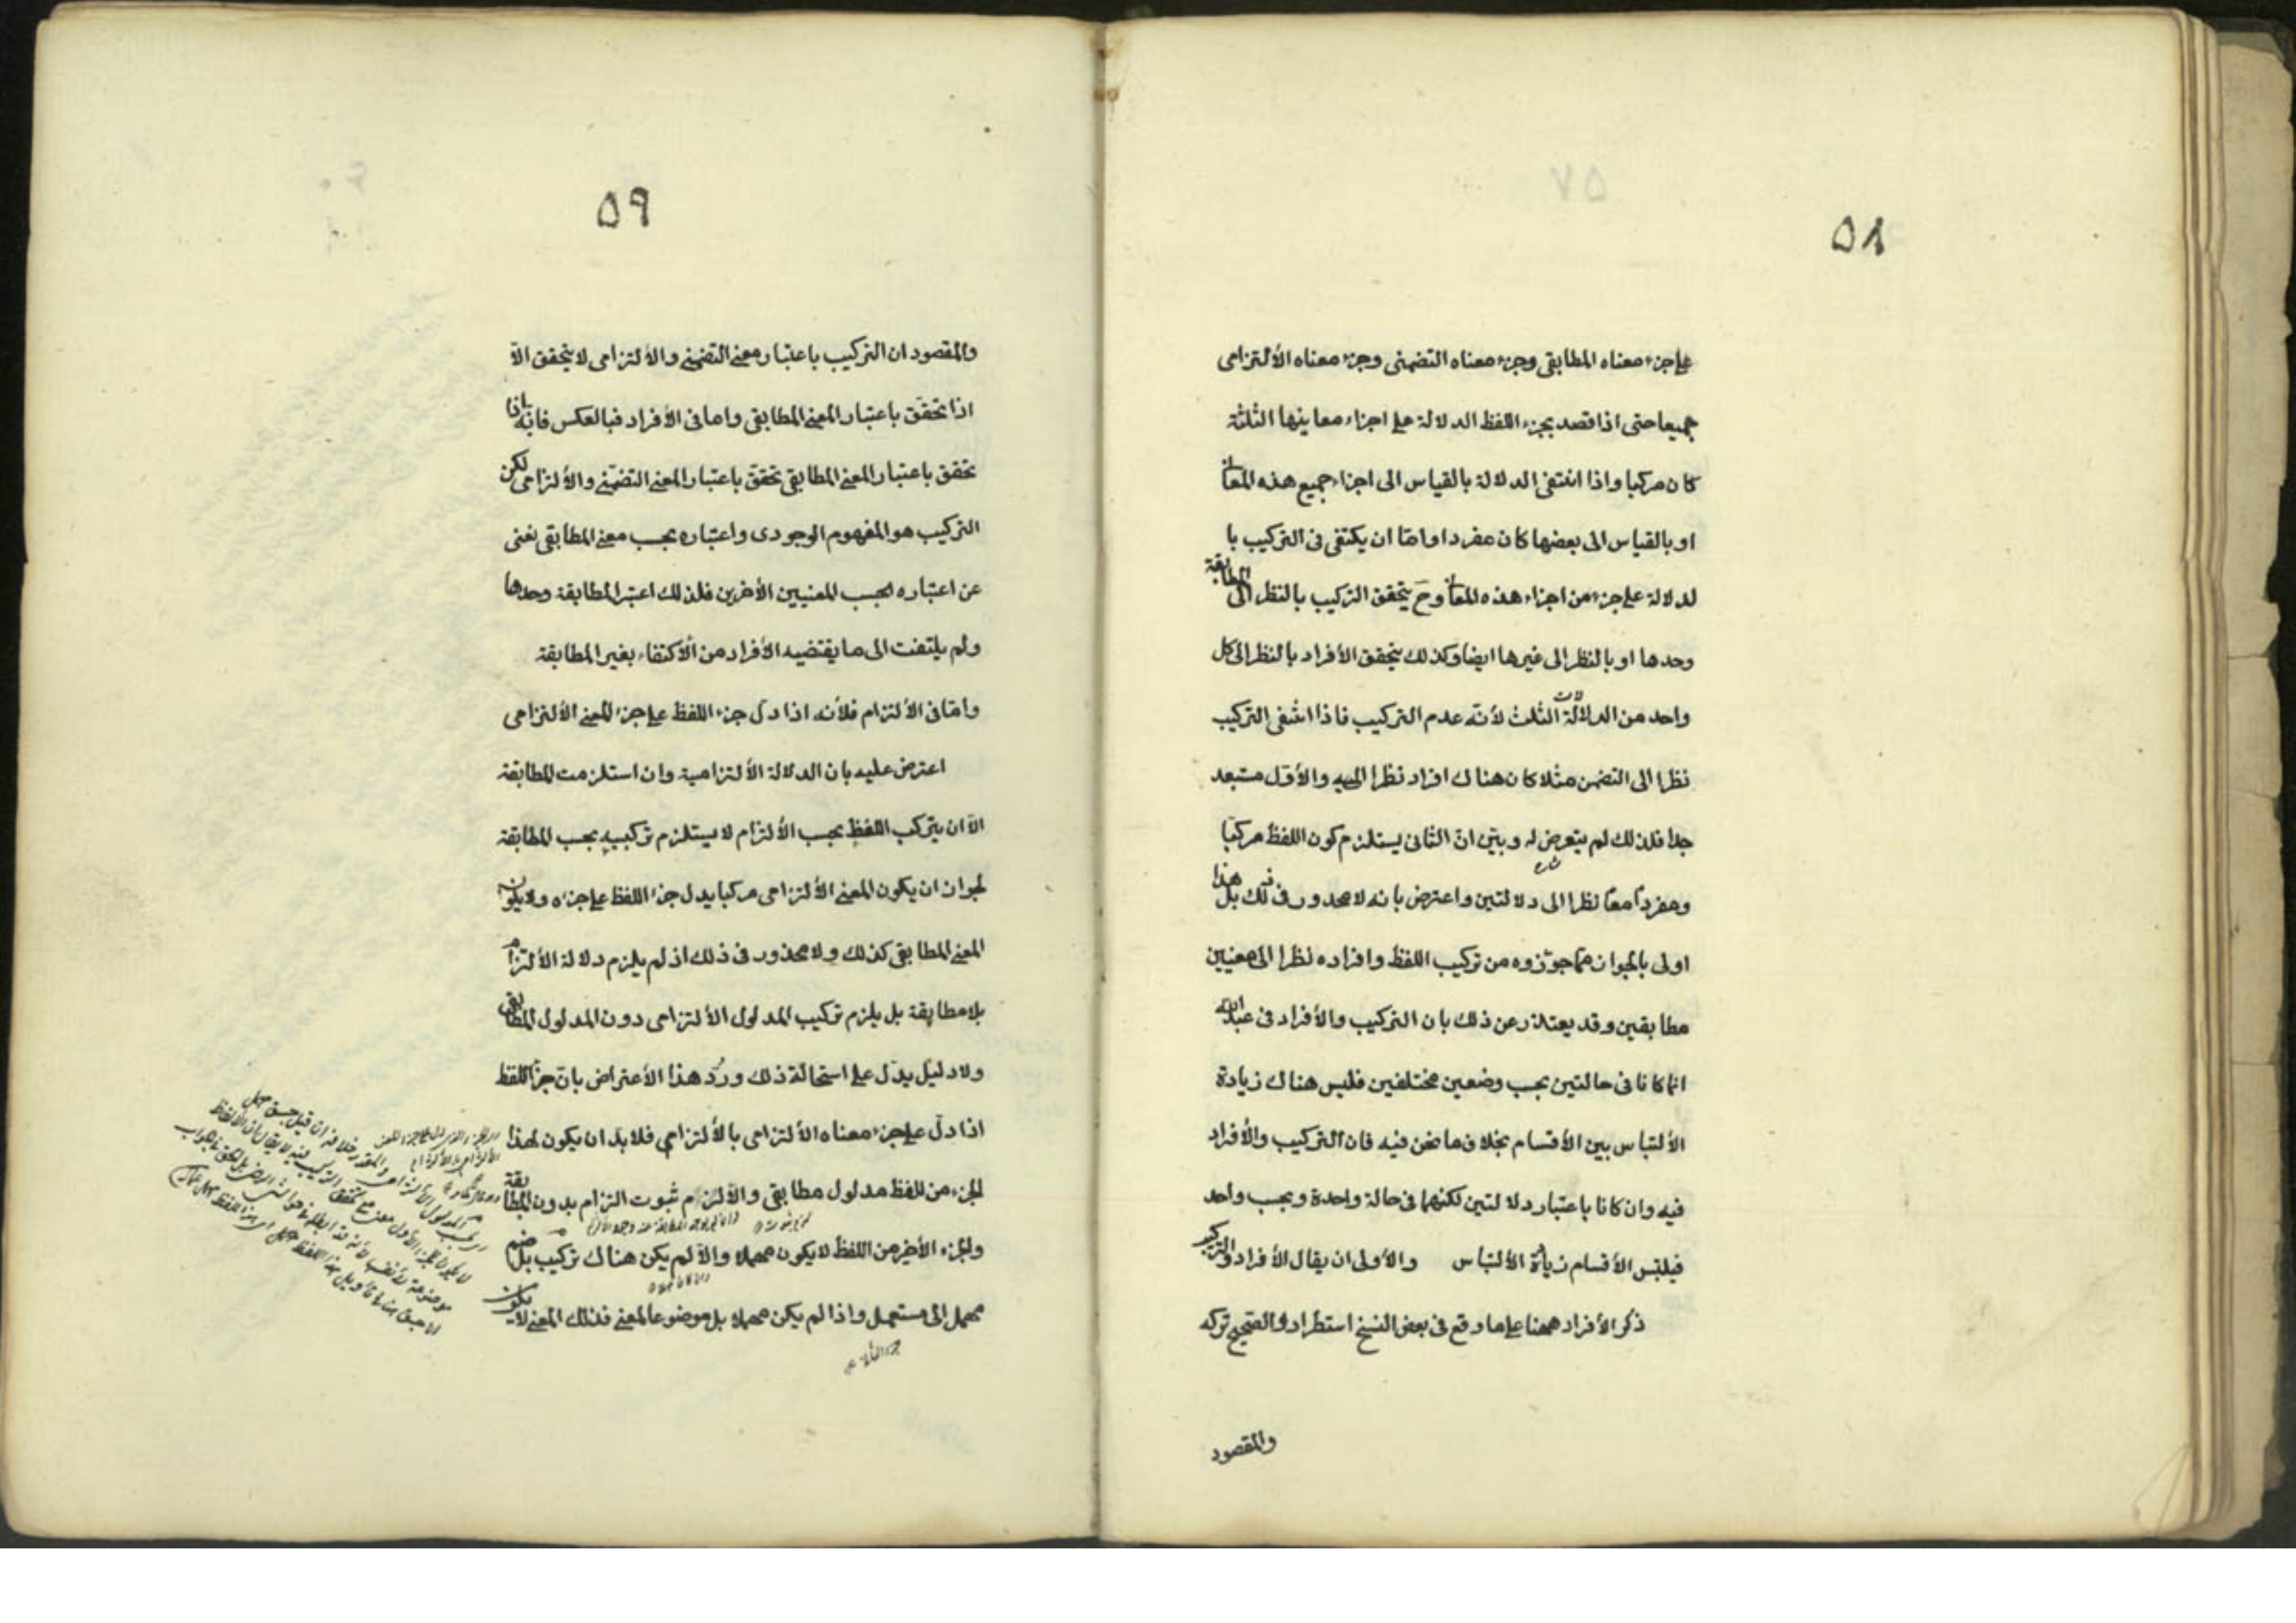 ٥٨
على جزء معناه المطابقى وجزء معناه التضمنى وجزء معناه الألتزامى
جميعا حتى اذا قصد بجزء اللفظ الدلالة على اجزاء معاينها الثلثة
كان مركبا واذا انتفى الدلالة بالقياس الى اجزاء جميع هذه المعانى
او بالقياس الى بعضها كان مفردا واما ان يكتفى فى التركيب با
لدلالة على جزء من اجزاء هذه المعانى وح يتحقق التركيب بالنظر الى المطابقة
وحدها او بالنظر الى غيرها ايضا وكذلك يتحقق الأفراد بالنظر الى كل
واحد من الدلالات الثلث لأنّه عدم التركيب فاذا انتفى التركيب
نظرا الى التضمن مثلا كان هناك افراد نظرا اليه والأوّل مستبعد
جدا فلذلك لم يتعرض له وبيّن انّ الثانى يستلزم كون اللفظ مركبّا
ومفرداً معاً نظرا الى دلالتين واعترض بانه لا محذور فى ذلك بل هذا
اولى بالجواز مما جوّزوه من تركيب اللفظ وافراده نظرا الى معنيين
مطابقين وقد يعتذر عن ذلك بان التركيب والأفراد فى عبد الله
انما كانا فى حالتين بحسب وضعين مختلفين فليس هناك زيادة
الألتباس بين الأقسام بخلاف ما نحن فيه فان التركيب والأفراد
فيه وان كانا باعتبار دلالتين لكنهما فى حالة واحدة وبحسب واحد
فيلتبس الأقسام زيادة الألتباس والأولى ان يقال الأفراد والتركيب
ذكر الأفراد ههنا على ما وقع فى بعض النسخ استطرادا والصحيح تركه
والمقصود
٥٩
والمقصود ان التركيب باعتبار معنى التضمنى والألتزامى لا يتحقق الاّ
اذا تحقّق باعتبار المعنى المطابقى واما فى الأفراد فبالعكس فانّه اذا
تحقق باعتبار المعنى المطابقى تحقق باعتبار المعنى التضمّنى والألتزامى لكن
التركيب هو المفهوم الوجودى واعتباره بحسب معنى المطابقى نغنى
عن اعتباره بحسب المعنيين الأخرين فلذلك اعتبر المطابقة وحدها
ولم يلتفت الى ما يقتضيه الأفراد من الأكتفاء بغير المطابقة
وامّا فى الألتزام فلأنه اذا دلّ جزء اللفظ على جزء المعنى الألتزامى
اعترض عليه بان الدلالة الألتزامية وان استلزمت المطابقة
الاّ ان يتركب اللفظ بحسب الألتزام لا يستلزم تركيبه بحسب المطابقة
لجواز ان يكون المعنى الألتزامى مركبا يدل جزء اللفظ على جزءه ولا يكون
المعنى المطابقى كذلك ولا محذور فى ذلك اذ لم يلزم دلالة الألتزام
بلا مطابقة بل يلزم تركيب المدلول الألتزامى دون المدلول المطابقى
ولا دليل يدلّ على استحالة ذلك وردّ هذا الأعتراض بانّ جزء اللفظ
اذا دلّ على جزء معناه الألتزامى بالألتزامى فلا بدّ ان يكون لهذا
الجزء من اللفظ مدلول مطابقى والاّ لزم ثبوت التزام بدون المطابقة
والجزء الأخير من اللفظ لا يكون مهملا والاّ لم يكن هناك تركيب بل ضم
مهمل الى مستعمل واذا لم يكن مهملا بل موضوعا لمعنى فذلك المعنى لا يكون